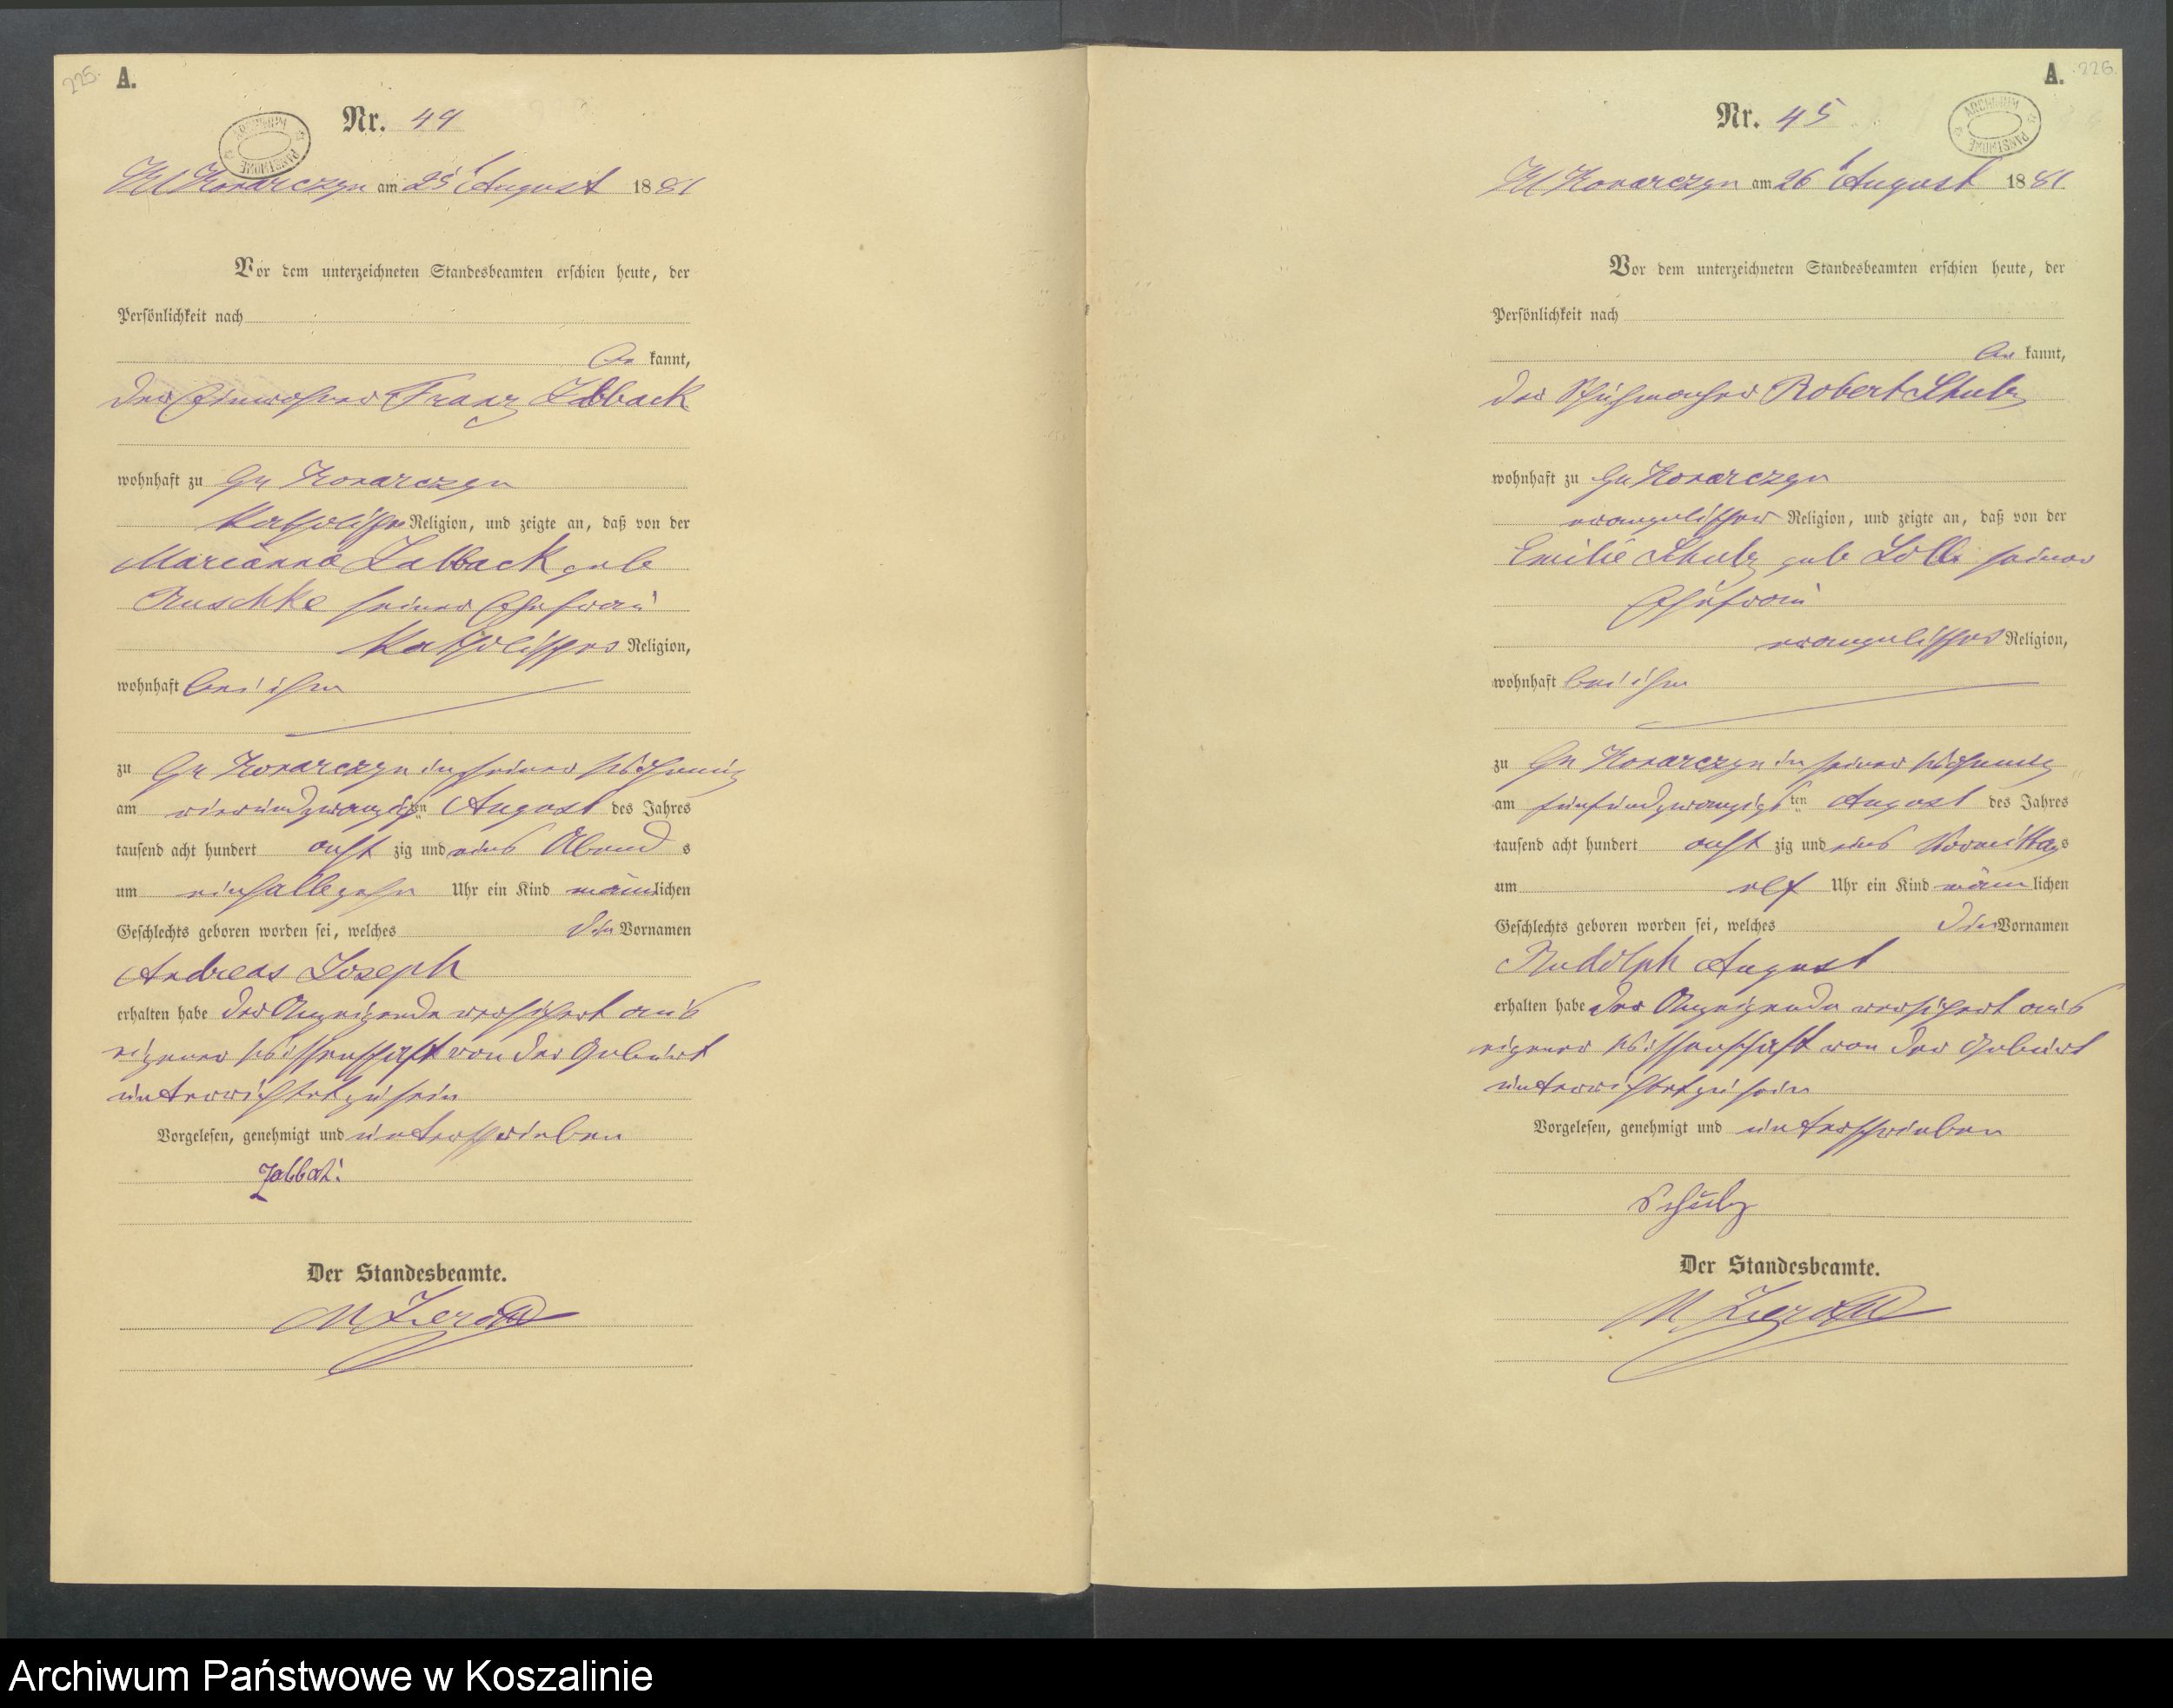 225.
A.
Nr. 44
ARCHIWUM PAŃSTWOWE
Kl Konarczyn am 25 August 1881
Vor dem unterzeichneten Standesbeamten erschien heute, der
Persönlichkeit nach
be kannt,
der Einwohner Franz Zabback
wohnhaft zu Gr Konarczyn
katholischer Religion, und zeigte an, daß von der
Marianna Zabback geb
Ruschke seiner Ehefrau
katholischer Religion,
wohnhaft bei ihm
zu Gr Konarczyn in seiner Wohnung
am vierundzwanzigsten August des Jahres
tausend acht hundert acht zig und eins Abend s
um einhalbzehn Uhr ein Kind männlichen
Geschlechts geboren worden sei, welches die Vornamen
Andreas Joseph
erhalten habe der Anzeigende versichert aus
eigener Wissenschaft von der Geburt
unterrichtet zu sein
Vorgelesen, genehmigt und unterschrieben
Der Standesbeamte.
226.
A.
Nr. 45
ARCHIWUM PAŃSTWOWE
Kl Konarczyn am 26 August 1881
Vor dem unterzeichneten Standesbeamten erschien heute, der
Persönlichkeit nach
be kannt,
der Schuhmacher Robert Schulz
wohnhaft zu Gr Konarczyn
evangelischer Religion, und zeigte an, daß von der
Emilie Schulz geb seiner
Ehefrau
evangelischer Religion,
wohnhaft bei ihm
zu Gr Konarczyn in seiner Wohnung
am fünfundzwanzigsten August des Jahres
tausend acht hundert acht zig und eins Vormittags
um elf Uhr ein Kind männlichen
Geschlechts geboren worden sei, welches die Vornamen
Rudolph August
erhalten habe der Anzeigende versichert aus
eigener Wissenschaft von der Geburt
unterrichtet zu sein
Vorgelesen, genehmigt und unterschrieben
Schulz
Der Standesbeamte.
Archiwum Państwowe w Koszalinie